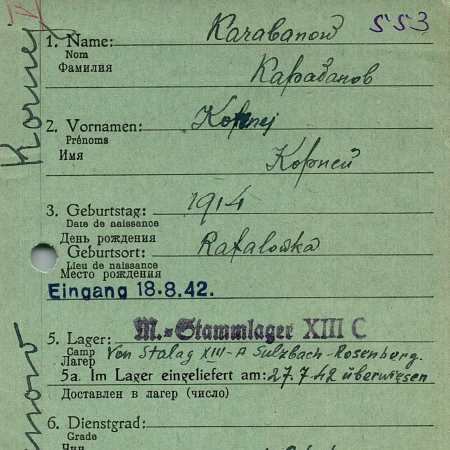 553
1. Name: Karabanow
Nom
Фамилия Карабанов
2. Vornamen: Kornej
Prénoms
Имя Корней
3. Geburtstag: 1914
Date de naissance
День рождения
Geburtsort: Rafalowka
Lieu de naissance
Место рождения
Eingang 18.8.42.
5. Lager: M.-Stammlager XIII C
Camp
Лагерь Von Stalag XIII-A Sulzbach-Rosenberg.
5a. Im Lager eingeliefert am: 27.7.42 überwiesen
Доставлен в лагерь (число)
6. Dienstgrad:
Grade
Чин
Kornej